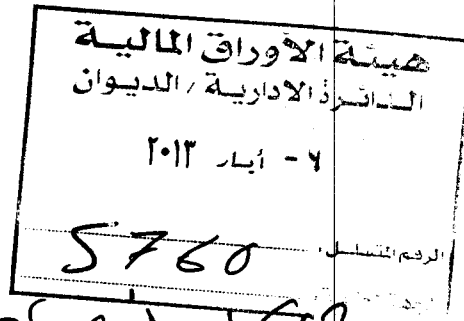 هيئة الأوراق المالية
الدائرة الادارية / الديوان
٦ - أيار ٢٠١٣
الرقم المتسلسل: 5760